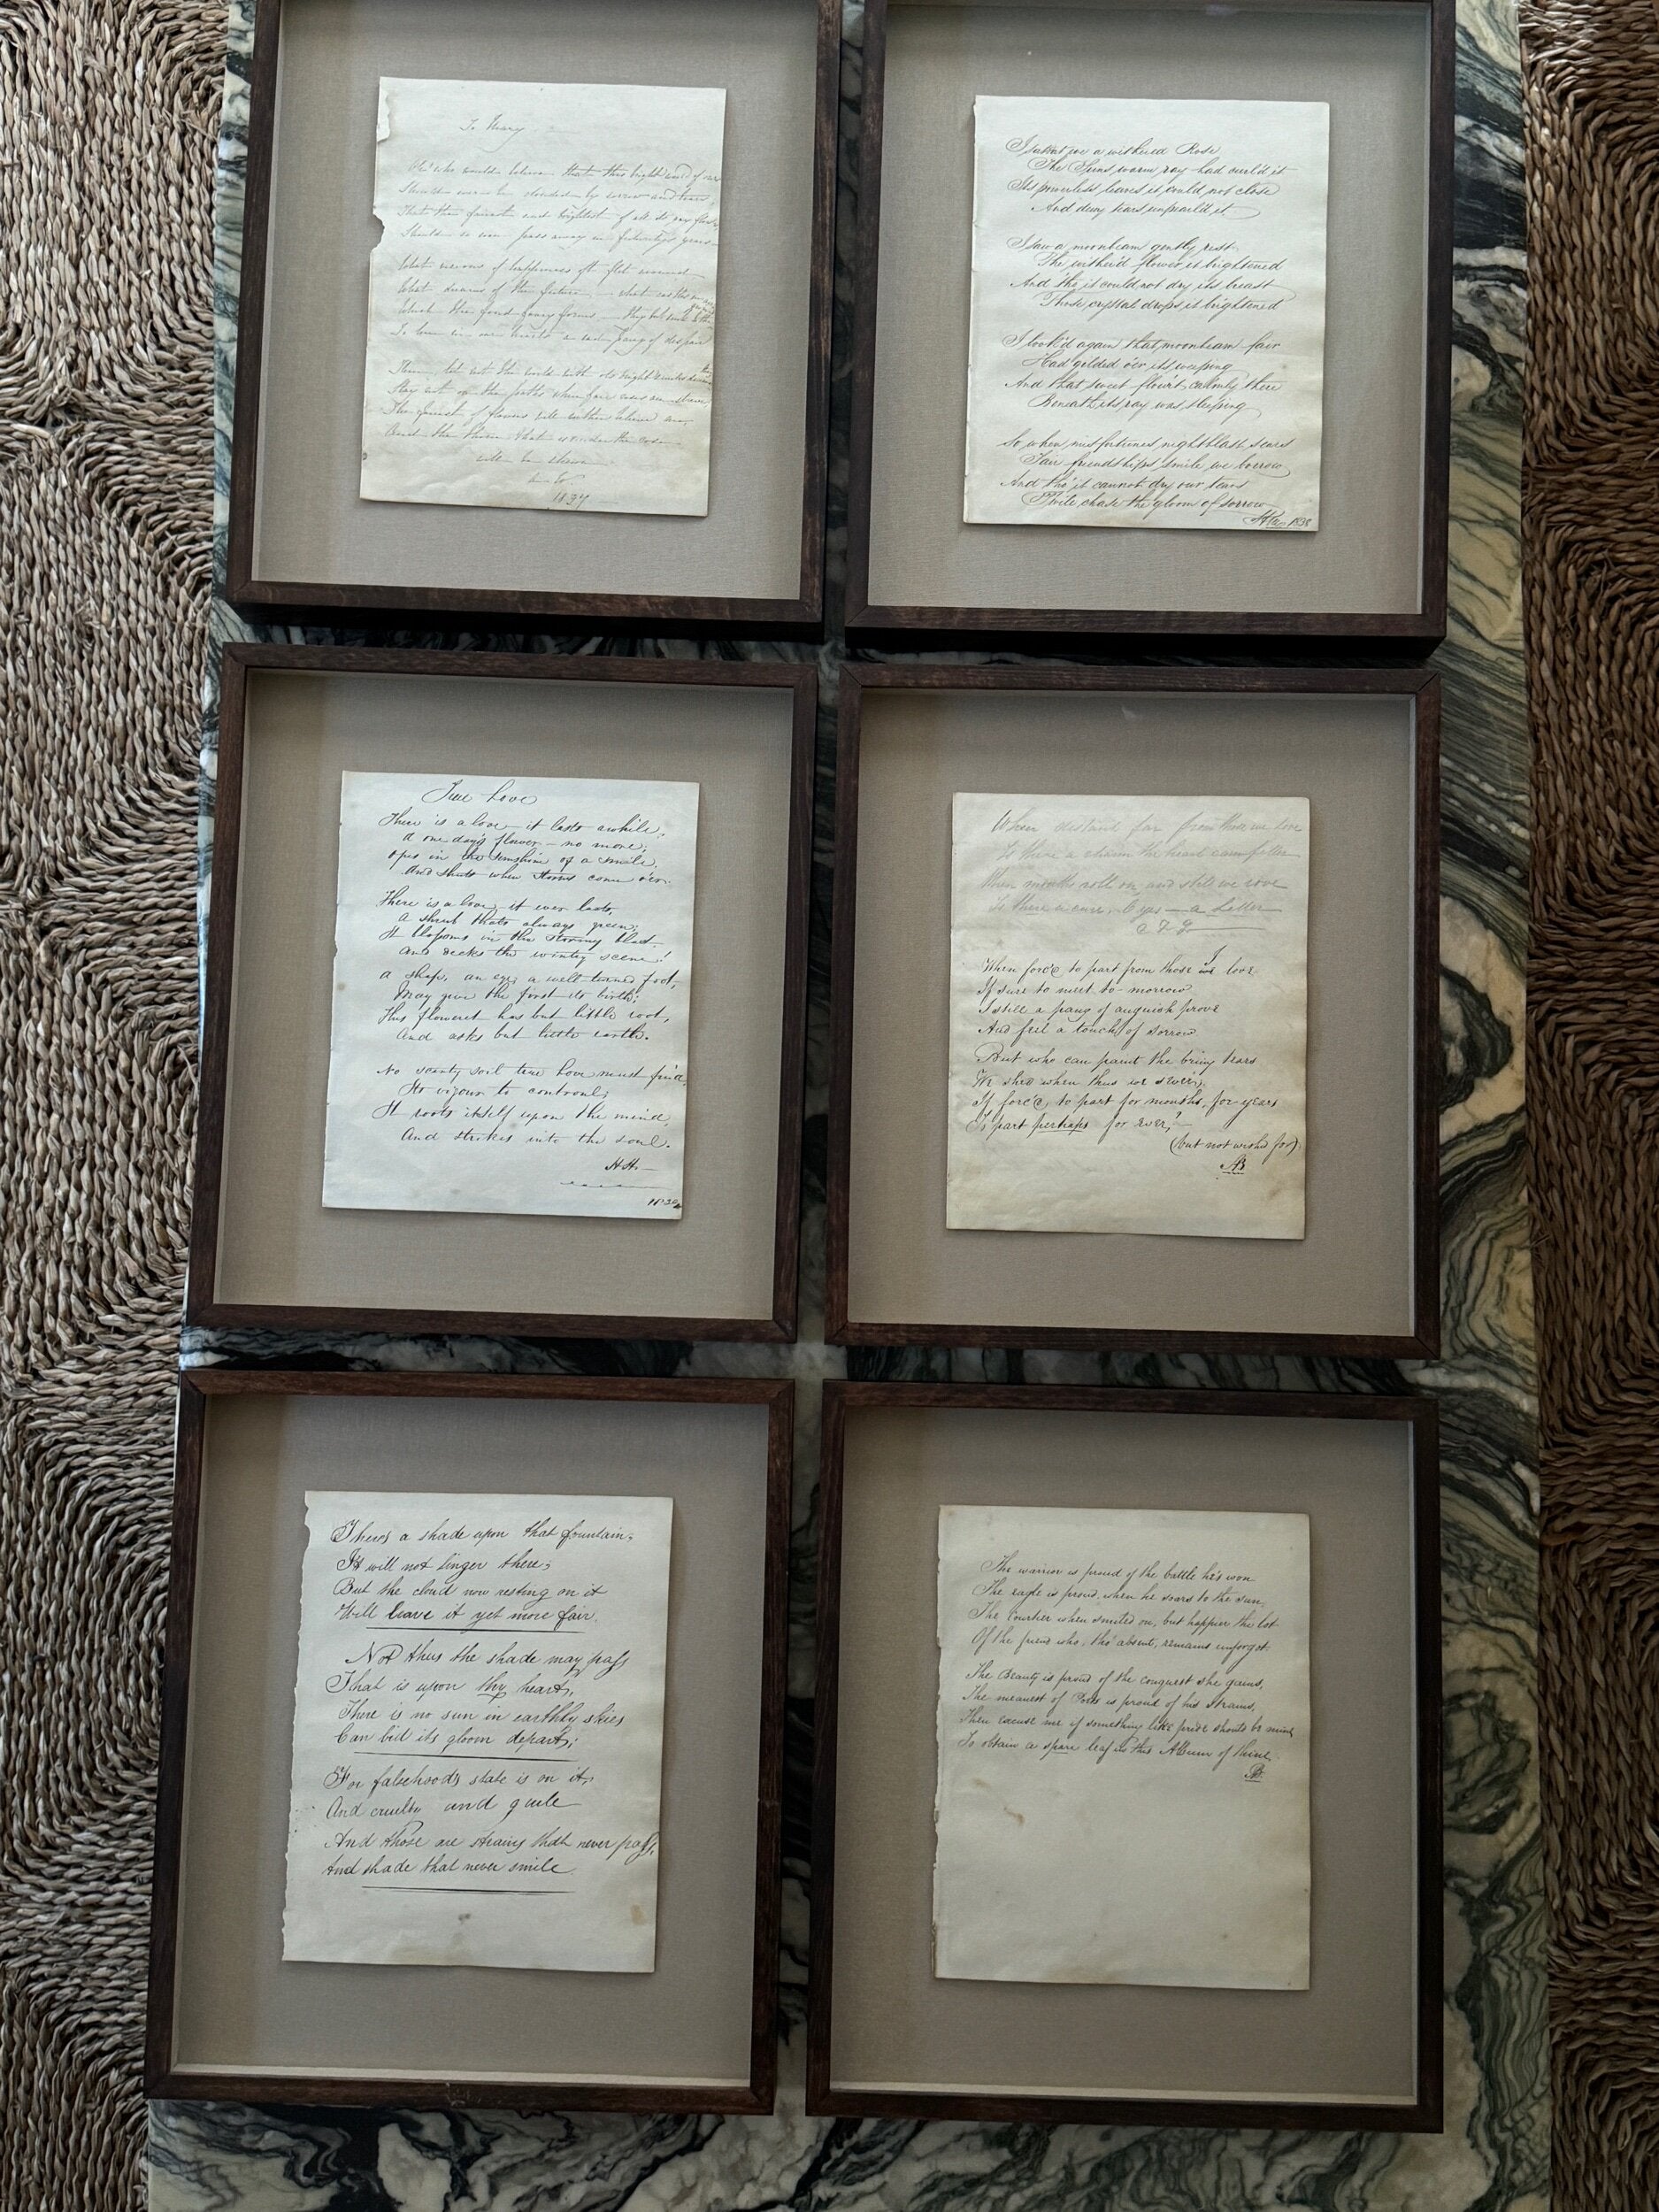 To Mary
Oh! who would believe that this bright world of ours
Should ever be clouded by sorrow and tears,
That the fairest and brightest of all its gay flowers
Should so soon pass away in years
What visions of happiness oft flit around
What dreams of the future — what
the fond fancy forms, — they but
To leave in our hearts a pang of despair
Then, let not the world with its bright
Stay not on the paths when fair roses are
The of flowers will wither
And the thorn that is the rose
will be
1837
I saw a withered Rose
The Sun's warm ray had curl'd it
Its powerless leaves it could not close
And dewy tears impearl'd it
I saw a moonbeam gently rest
The wither'd flower it brightened
And tho' it could not dry its breast
Those crystal drops it brightened
I look'd again that moonbeam fair
Had gilded o'er its weeping
And that sweet flow'r calmly there
Beneath its ray was sleeping
So when misfortunes night blast sears
Fair friendships smile we borrow
And tho' it cannot dry our tears
'Twile chase the gloom of sorrow
1838
True Love
There is a love — it lasts awhile,
A one day's flower — no more;
Opes in the sunshine of a smile,
And shuts when storms come o'er.
There is a love, it ever lasts,
A shrub thats always green;
It blossoms in the stormy blast,
And decks the wintry scene!
A shape, an eye, a well turned foot,
May give the first its birth;
This floweret has but little root,
And asks but little earth.
No scanty soil true Love must find,
Its vigour to controul;
It roots itself upon the mind,
And strikes into the soul.
H H.—
When distant far from those we love
Is there a charm the heart can fetter
When months roll on and still we rove
Is there a cure, O yes — a Letter
When forc'd to part from those we I love
If sure to meet to-morrow
I still a pang of anguish prove
And feel a touch of sorrow
But who can paint the briny tears
We shed when thus we sever,
If forc'd to part for months, for years
To part perhaps for ever?
(but not wished for)
AB
There's a shade upon that fountain;
It will not linger there;
But the cloud now resting on it
Will leave it yet more fair.
Not thus the shade may pass
That is upon thy heart,
There is no sun in earthly skies
Can bid its gloom depart;
For falsehood's state is on it,
And cruelty and guile
And those are strains that never pass,
And shade that never smile
The warrior is proud of the battle he's won
The eagle is proud, when he soars to the sun,
The Courtier when smiled on, but happier the lot
Of the friend who, tho' absent, remains unforgot.
The Beauty is proud of the conquest she gains,
The meanest of Poets is proud of his strains,
Then excuse me if something like pride should be mine
To obtain a spare leaf in this Album of thine.